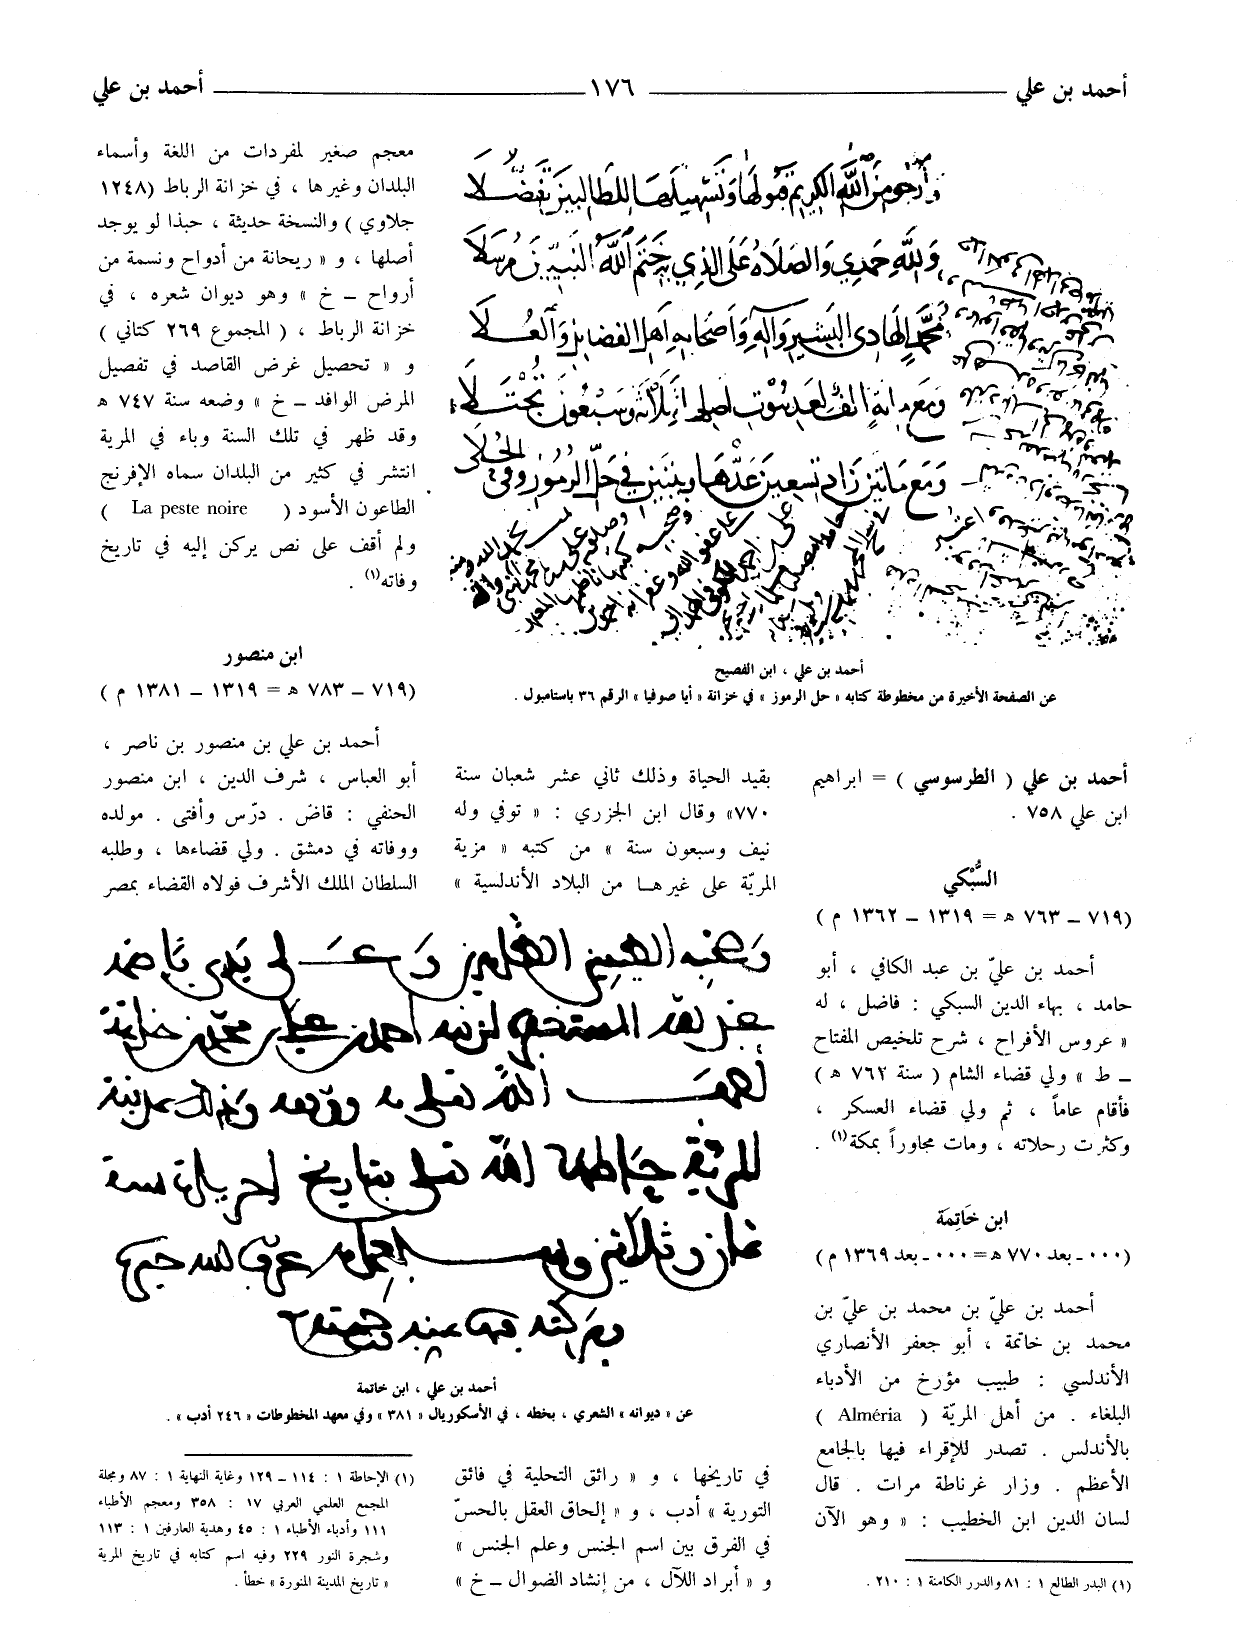 أحمد بن علي ١٧٦ أحمد بن علي
وأرجو من الله الكريم قبولها وتسهيلها للطالبين تفضلا
ولله حمدي والصلاة على الذي به ختم الله النبيين مرسلا
محمد الهادي البشير وآله وأصحابه أهل الفضائل والعلا
أحمد بن علي ، ابن الفصيح
عن الصفحة الأخيرة من مخطوطة كتابه « حل الرموز » في خزانة « أيا صوفيا » الرقم ٣٦ باستامبول .
أحمد بن علي ( الطرسوسي ) = ابراهيم
ابن علي ٧٥٨ .
السُّبْكي
(٧١٩ – ٧٦٣ ه = ١٣١٩ – ١٣٦٢ م )
أحمد بن عليّ بن عبد الكافي ، أبو
حامد ، بهاء الدين السبكي : فاضل ، له
« عروس الأفراح ، شرح تلخيص المفتاح
– ط » ولي قضاء الشام ( سنة ٧٦٢ ه )
فأقام عاماً ، ثم ولي قضاء العسكر ،
وكثرت رحلاته ، ومات مجاوراً بمكة⁽¹⁾ .
ابن خَاتِمَة
(٠٠٠ - بعد ٧٧٠ ه = ٠٠٠ - بعد ١٣٦٩ م)
أحمد بن عليّ بن محمد بن عليّ بن
محمد بن خاتمة ، أبو جعفر الأنصاري
الأندلسي : طبيب مؤرخ من الأدباء
البلغاء . من أهل المريّة ( Alméria )
بالأندلس . تصدر للإقراء فيها بالجامع
الأعظم . وزار غرناطة مرات . قال
لسان الدين ابن الخطيب : « وهو الآن
(١) البدر الطالع ١ : ٨١ والدرر الكامنة ١ : ٢١٠ .
بقيد الحياة وذلك ثاني عشر شعبان سنة
٧٧٠» وقال ابن الجزري : « توفي وله
نيف وسبعون سنة » من كتبه « مزية
المريّة على غيرها من البلاد الأندلسية »
أحمد بن علي ، ابن خاتمة
عن « ديوانه » الشعري ، بخطه ، في الأسكوريال « ٣٨١ » وفي معهد المخطوطات « ٢٤٦ أدب » .
في تاريخها ، و « رائق التحلية في فائق
التورية » أدب ، و « إلحاق العقل بالحسّ
في الفرق بين اسم الجنس وعلم الجنس »
و « أبراد اللآل ، من إنشاد الضوال – خ »
معجم صغير لمفردات من اللغة وأسماء
البلدان وغيرها ، في خزانة الرباط (١٢٤٨
جلاوي ) والنسخة حديثة ، حبذا لو يوجد
أصلها ، و « ريحانة من أدواح ونسمة من
أرواح – خ » وهو ديوان شعره ، في
خزانة الرباط ، ( المجموع ٢٦٩ كتاني )
و « تحصيل غرض القاصد في تفصيل
المرض الوافد – خ » وضعه سنة ٧٤٧ ه
وقد ظهر في تلك السنة وباء في المرية
انتشر في كثير من البلدان سماه الإفرنج
الطاعون الأسود ( La peste noire )
ولم أقف على نص يركن إليه في تاريخ
وفاته⁽¹⁾ .
ابن منصور
(٧١٩ – ٧٨٣ ه = ١٣١٩ – ١٣٨١ م )
أحمد بن علي بن منصور بن ناصر ،
أبو العباس ، شرف الدين ، ابن منصور
الحنفي : قاضَ . درّس وأفتى . مولده
ووفاته في دمشق . ولي قضاءها ، وطلبه
السلطان الملك الأشرف فولاه القضاء بمصر
(١) الإحاطة ١ : ١١٤ – ١٢٩ وغاية النهاية ١ : ٨٧ ومجلة
المجمع العلمي العربي ١٧ : ٣٥٨ ومعجم الأطباء
١١١ وأدباء الأطباء ١ : ٤٥ وهدية العارفين ١ : ١١٣
وشجرة النور ٢٢٩ وفيه اسم كتابه في تاريخ المرية
« تاريخ المدينة المنورة » خطأ .